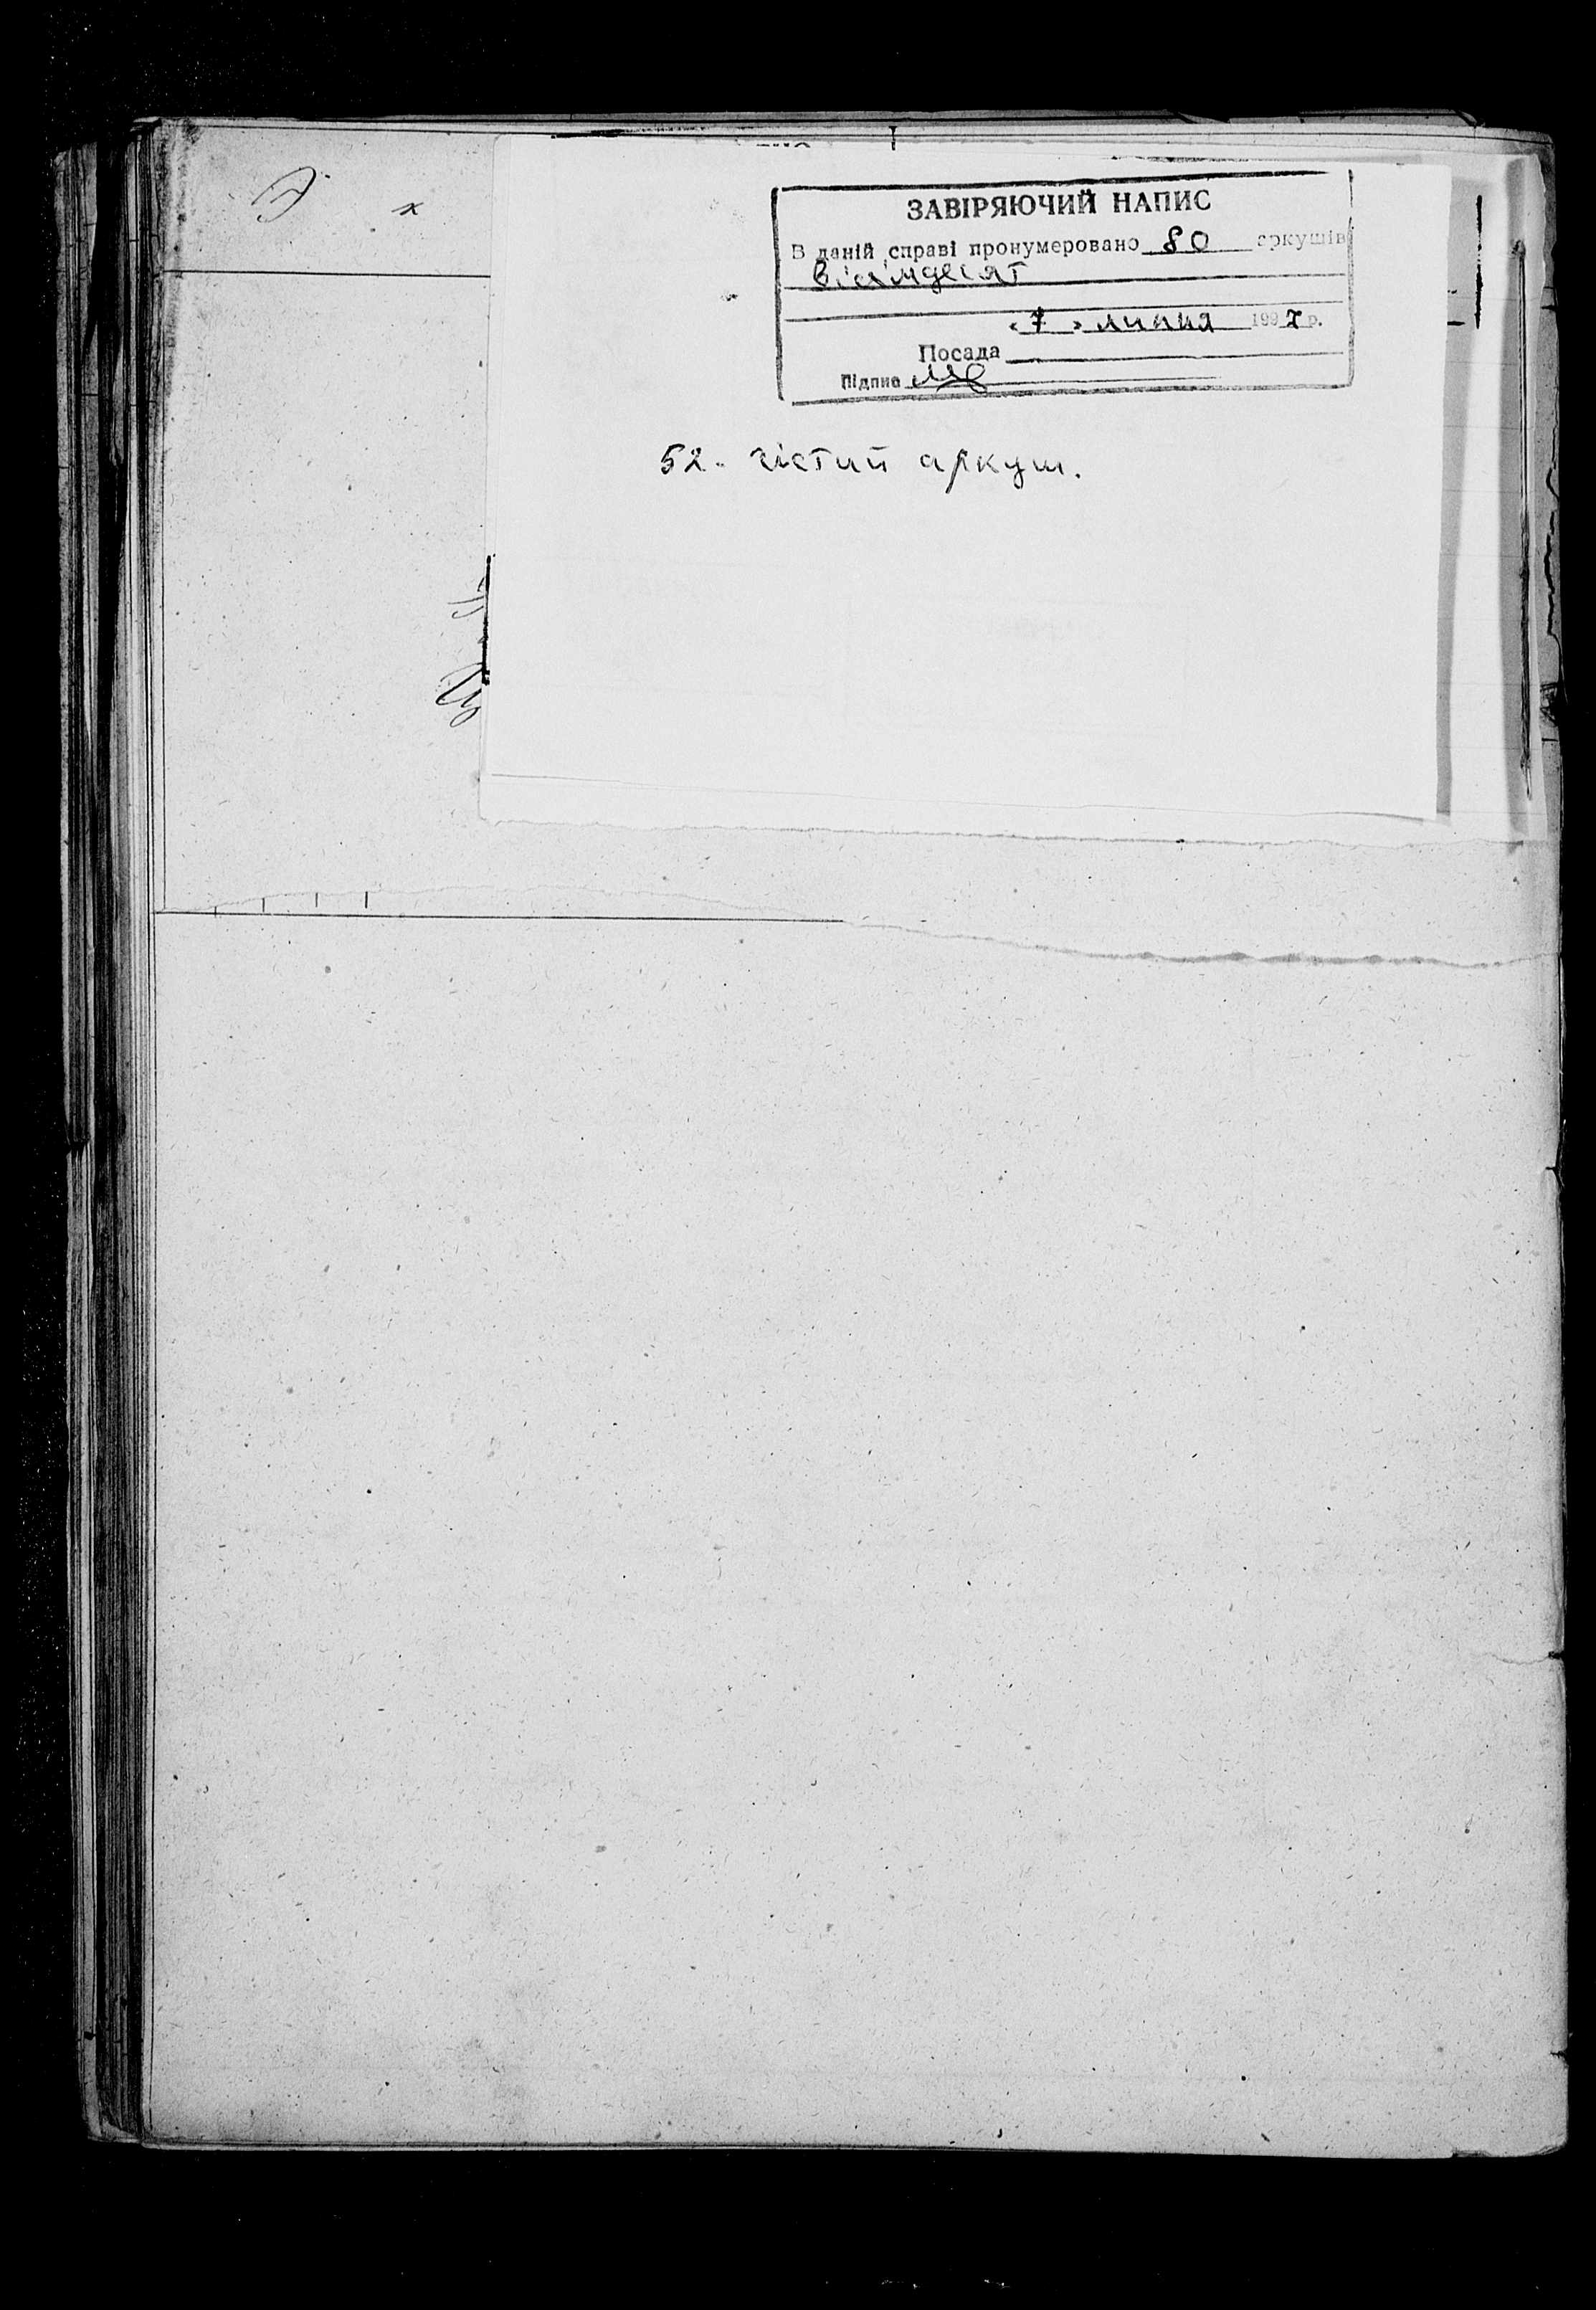 Э х
ЗАВІРЯЮЧИЙ НАПИС
В даній справі пронумеровано 80 аркушів
вісімдесят
«7» липня 1997 р.
Посада
Підпис
52 - чистий аркуш.